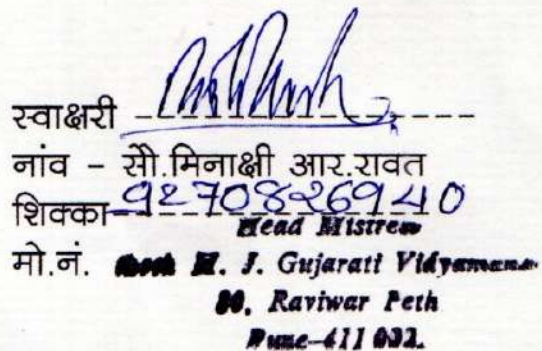 स्वाक्षरी
नांव - सौ.मिनाक्षी आर.रावत
शिक्का
Head Mistress
मो.नं. H. J. Gujarati Vidyamandir
80, Raviwar Peth
Pune-411 002.